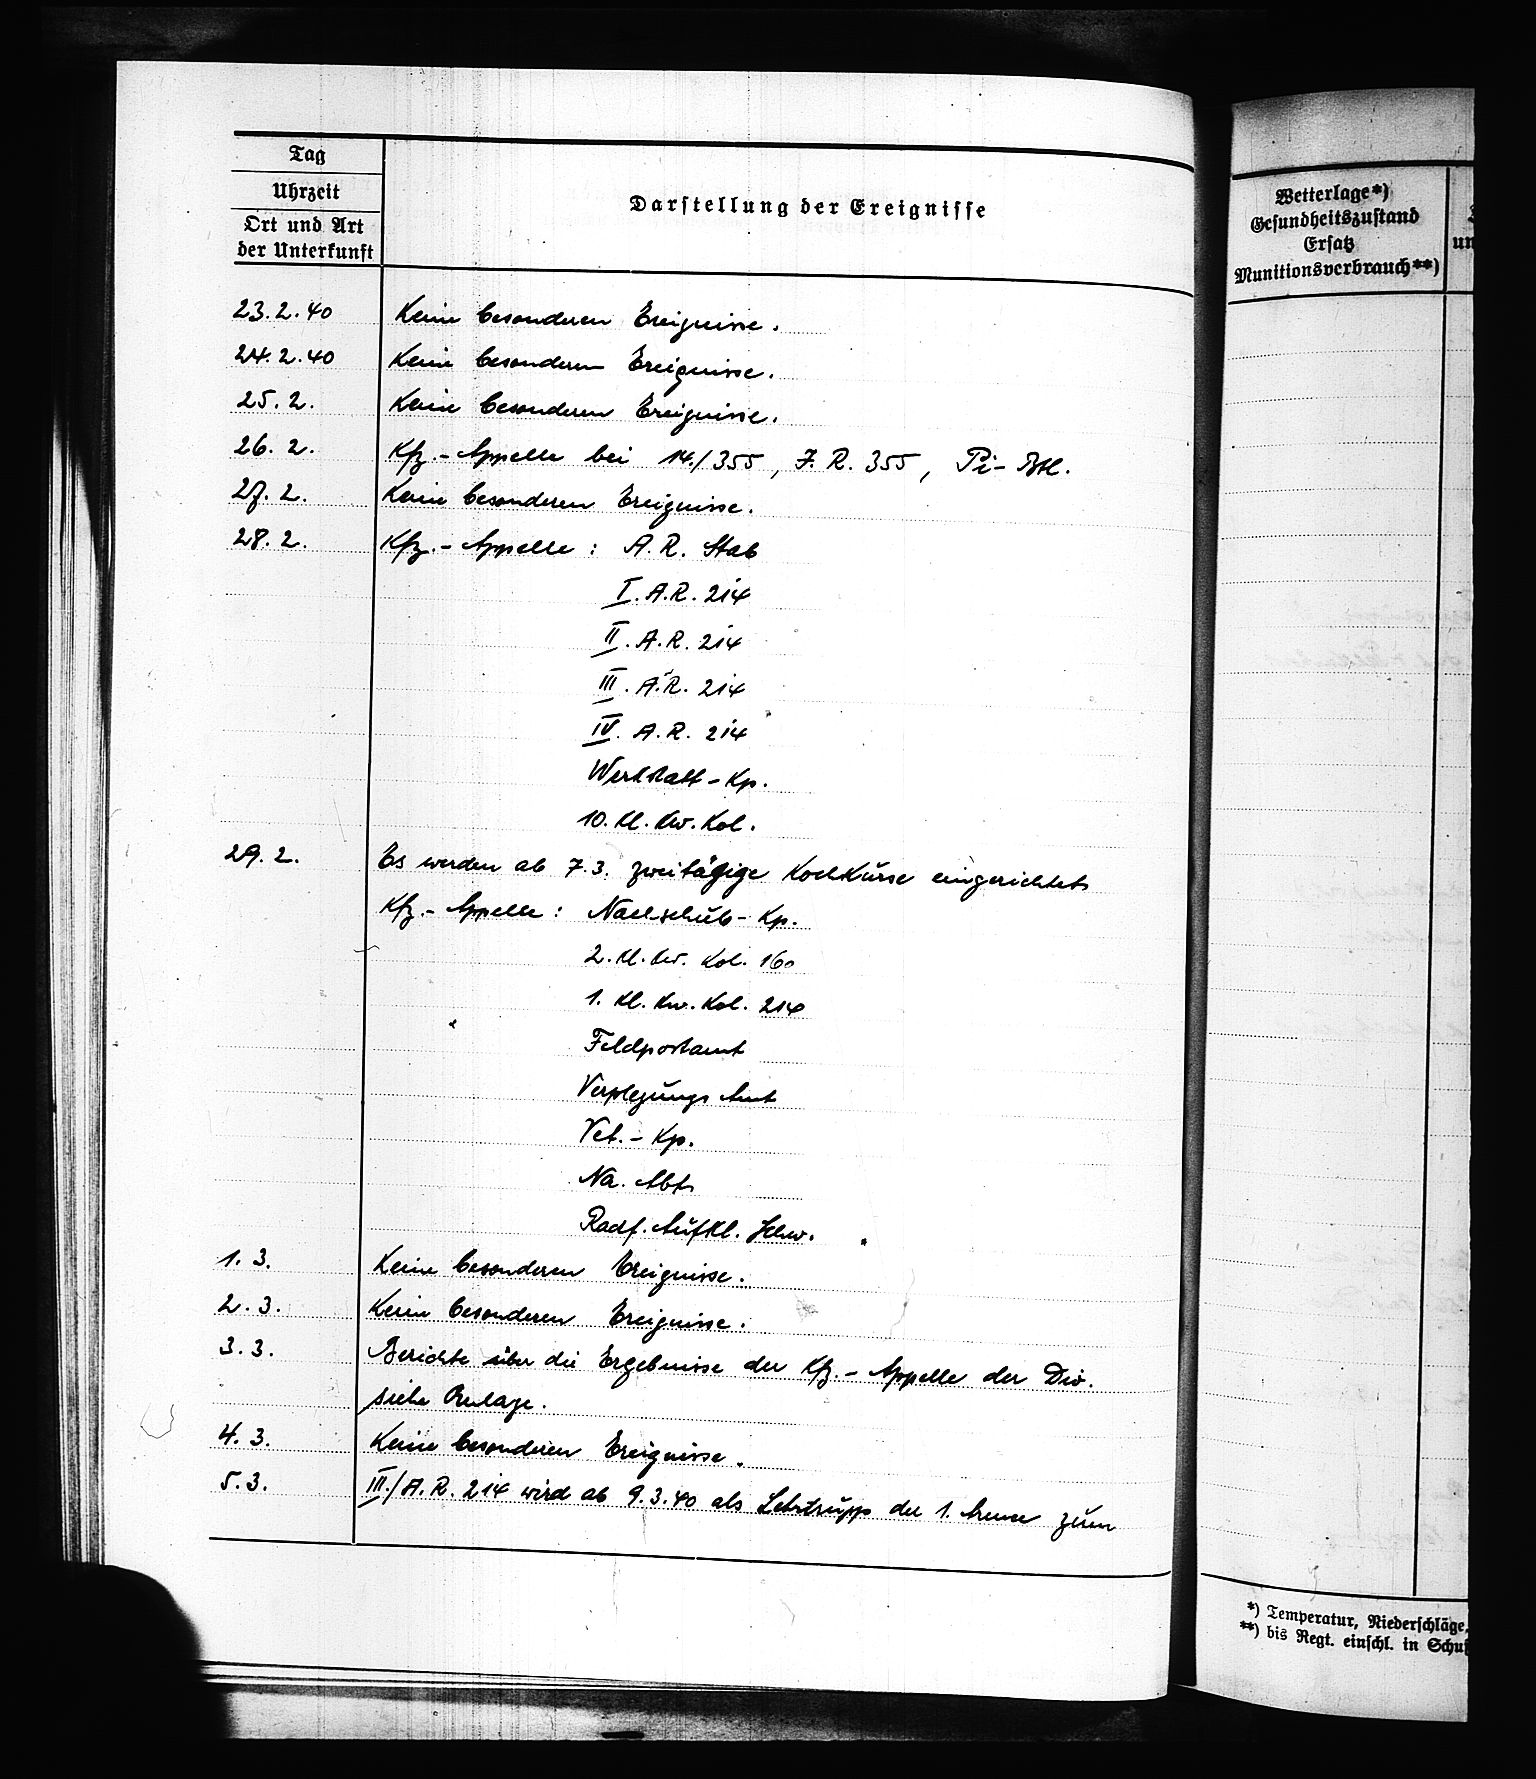 Tag
Uhrzeit
Ort und Art
der Unterkunft
Darstellung der Ereignisse
23.2.40 Keine besonderen Ereignisse.
24.2.40 Keine besonderen Ereignisse.
25.2. Keine besonderen Ereignisse.
26.2. Kfz.-Appelle bei 14./355, J.R. 355, Pi-Btl.
27.2. Keine besonderen Ereignisse.
28.2. Kfz.-Appelle: A.R. Stab
I. A.R. 214
II. A.R. 214
III. A.R. 214
IV. A.R. 214
Werkstatt-Kp.
10. Kl. Kw. Kol.
29.2. Es werden ab 7.3. zweitägige Kochkurse eingerichtet
Kfz.-Appelle: Nachschub-Kp.
2. Kl. Kw. Kol. 160
1. Kl. Kw. Kol. 214
Feldpostamt
Verplegungs Amt
Vet.-Kp.
Na. Abt.
Radf. Aufkl. Schw.
1.3. Keine besonderen Ereignisse.
2.3. Keine besonderen Ereignisse.
3.3. Berichte über die Ergebnisse der Kfz.-Appelle der Div.
siehe Anlage.
4.3. Keine besonderen Ereignisse.
5.3. III./A.R. 214 wird ab 9.3.40 als Lehrtrupp der 1. Armee zum
Wetterlage*)
Gesundheitszustand
Ersatz
Munitionsverbrauch**)
un
*) Temperatur, Niederschläge,
**) bis Regt. einschl. in Schuß